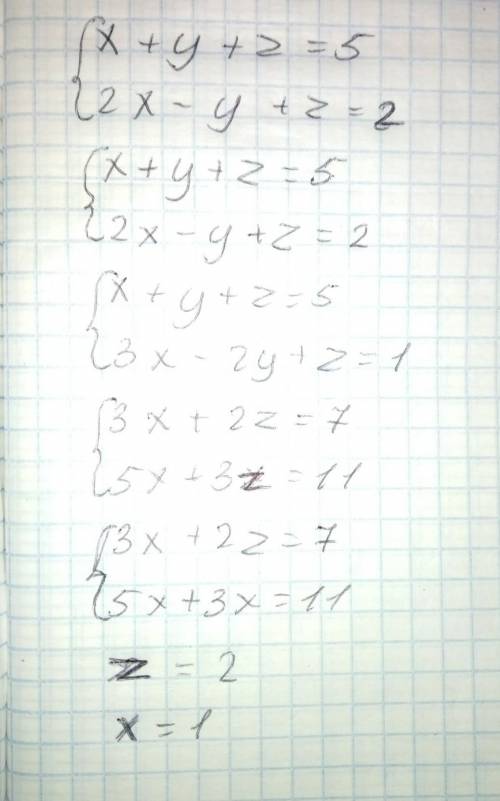 x + y + z = 5
2x - y + z = 2
x + y + z = 5
2x - y + z = 2
x + y + z = 5
3x - 2y + z = 1
3x + 2z = 7
5x + 3z = 11
3x + 2z = 7
5x + 3x = 11
z = 2
x = 1